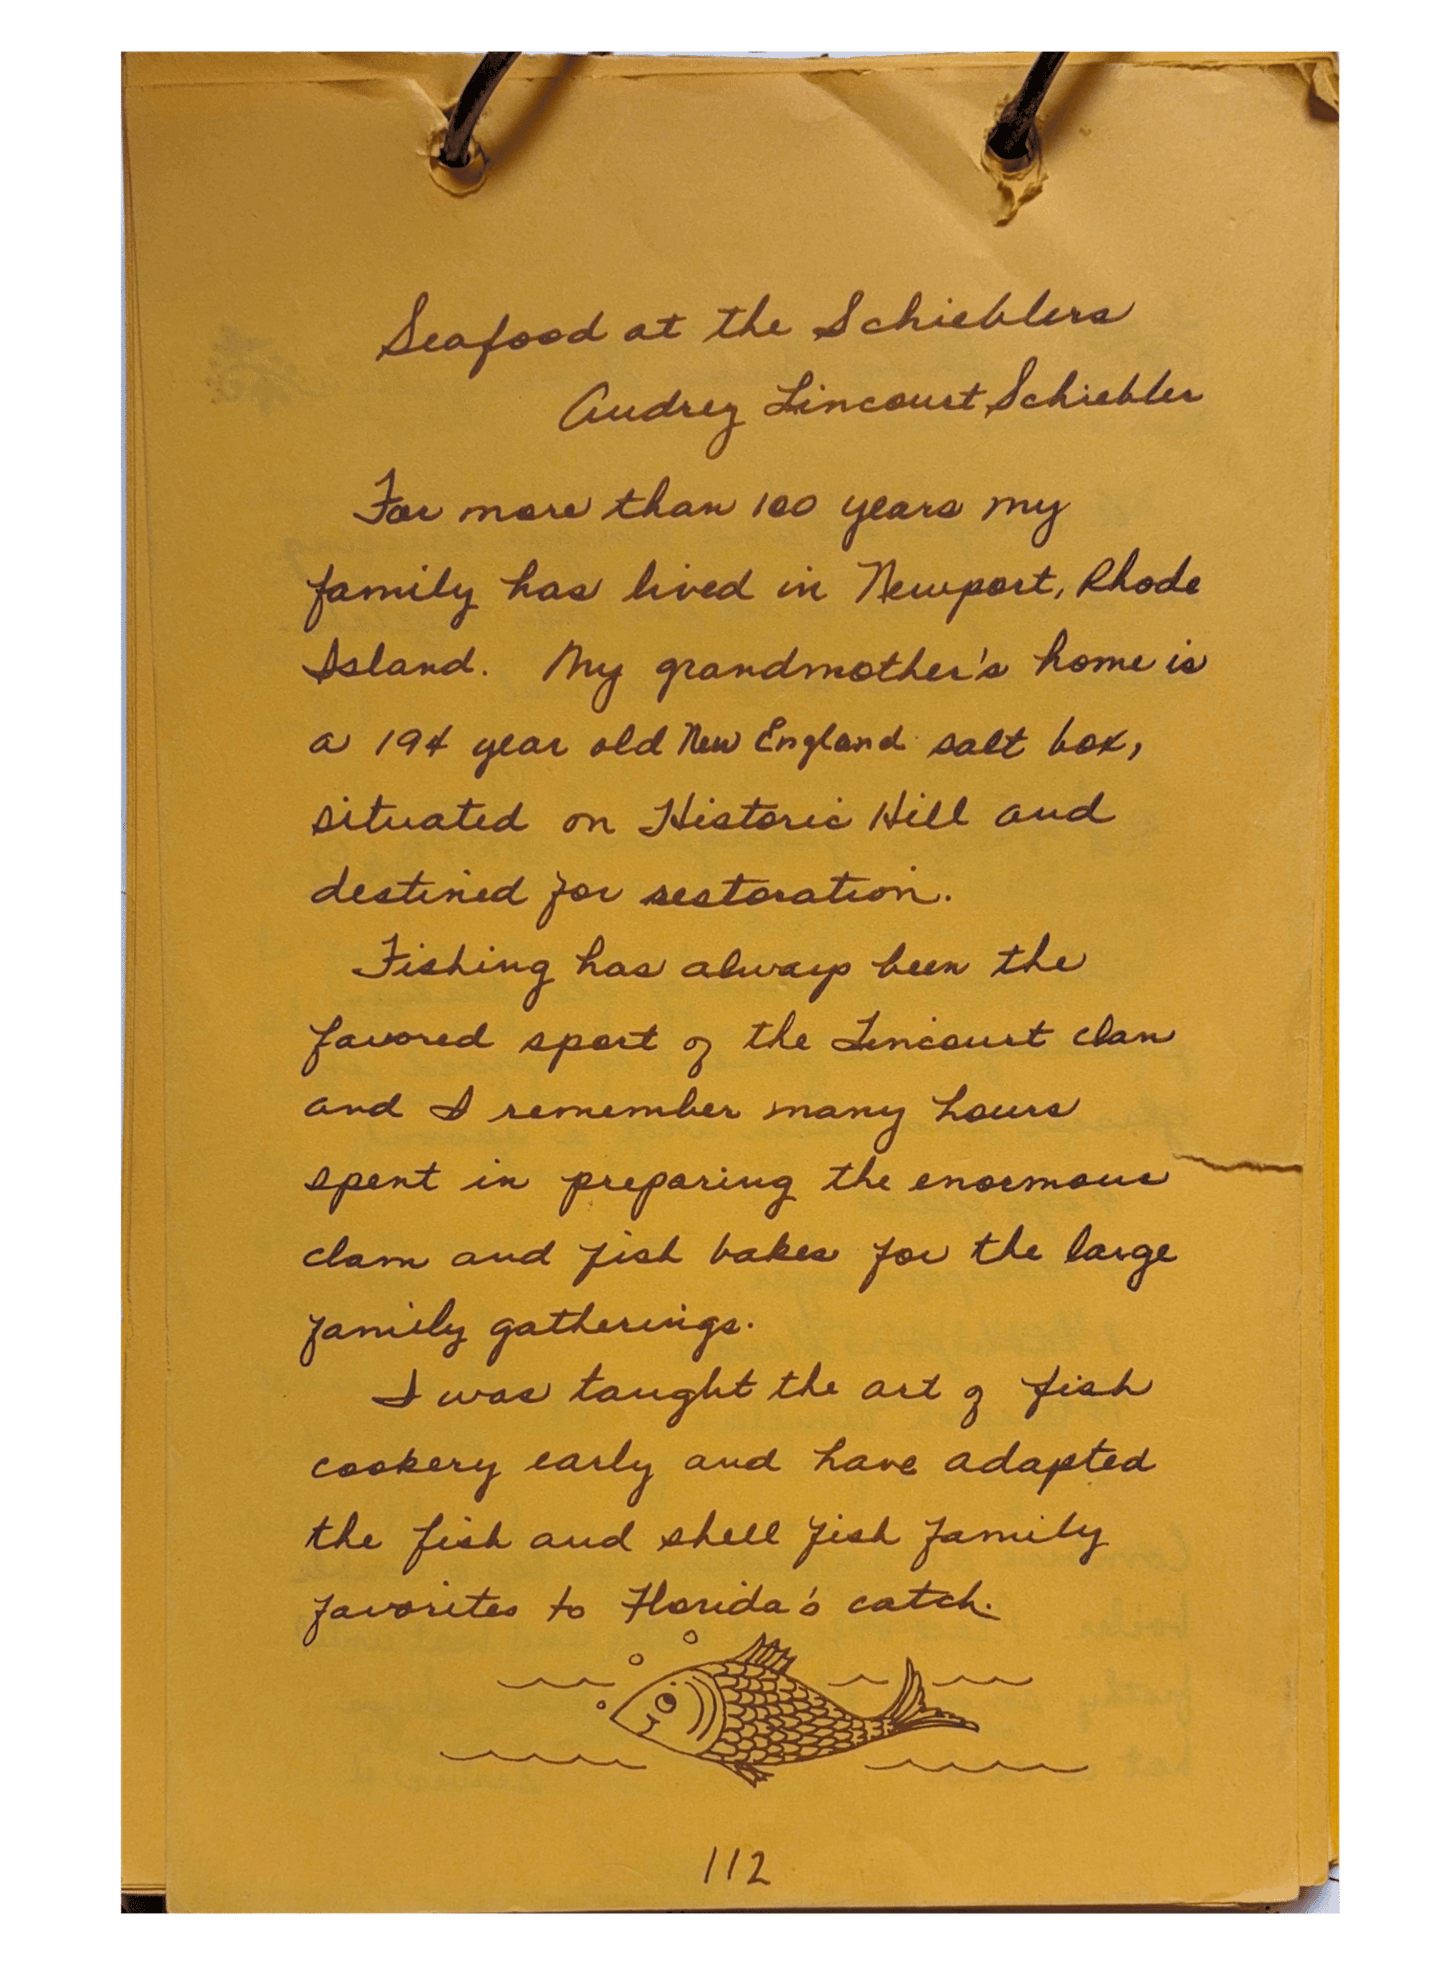 Seafood at the Schieblers
Audrey Lincourt Schiebler
For more than 100 years my
family has lived in Newport, Rhode
Island. My grandmother's home is
a 194 year old New England salt box,
situated on Historic Hill and
destined for restoration.
Fishing has always been the
favored sport of the Lincourt clan
and I remember many hours
spent in preparing the enormous
clam and fish bakes for the large
family gatherings.
I was taught the art of fish
cookery early and have adapted
the fish and shell fish family
favorites to Florida's catch.
112